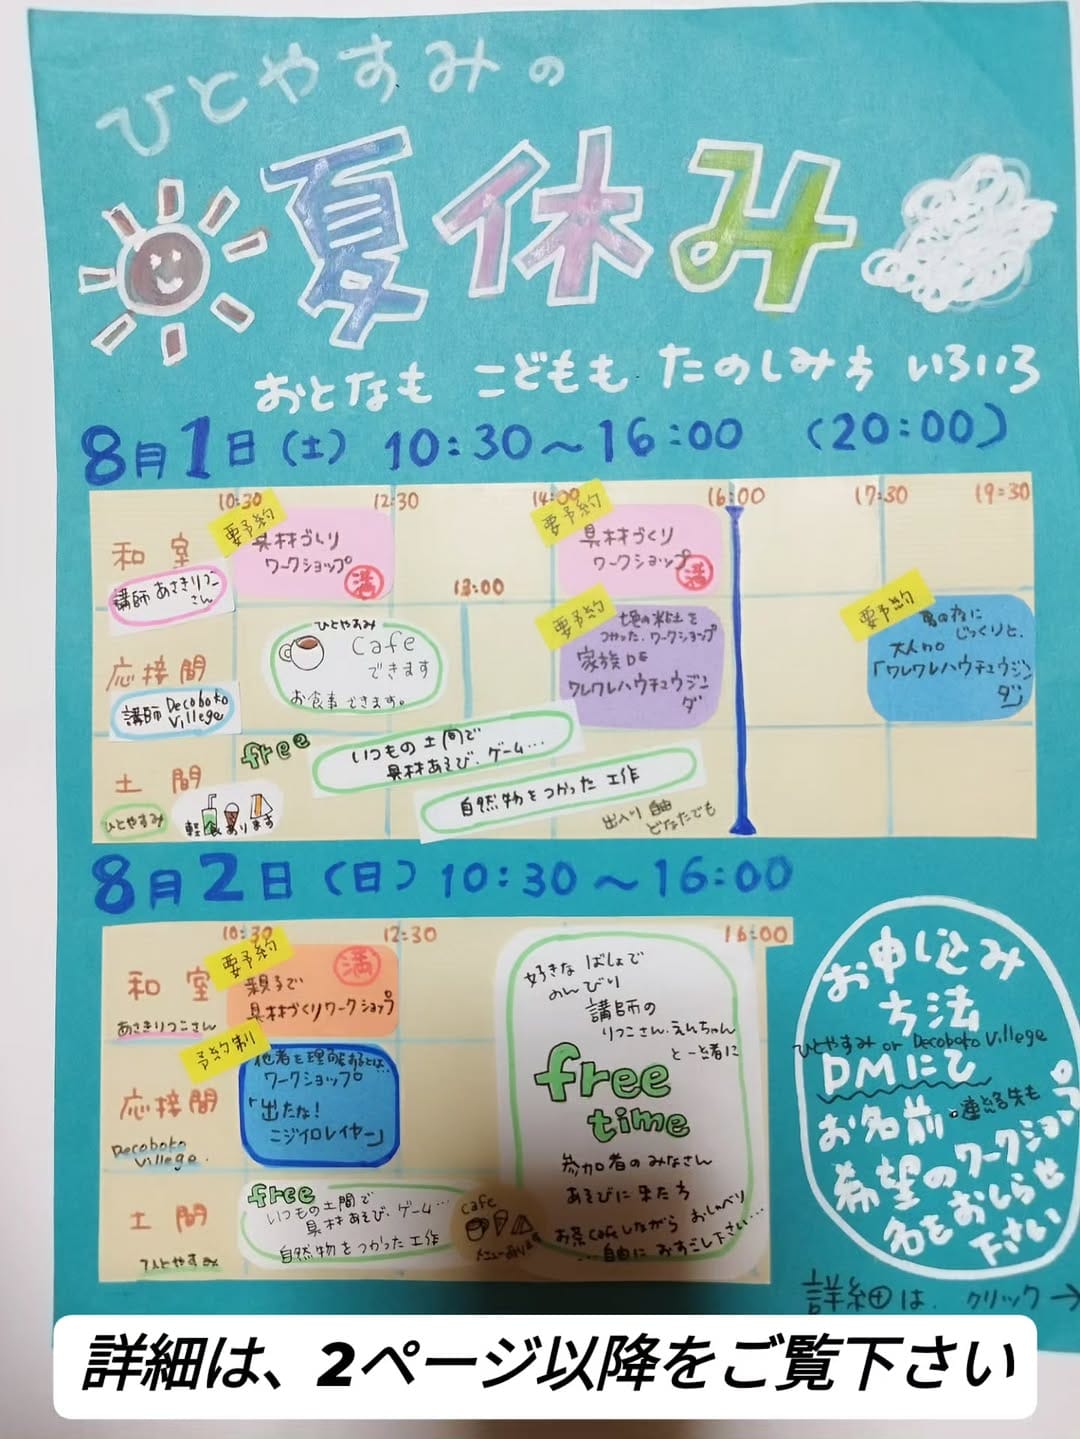 ひとやすみの
夏休み
おとなも こどもも たのしみち いろいろ
8月1日(土) 10:30～16:00 (20:00)
10:30 12:30 14:00 16:00 17:30 19:30
13:00
和室
講師 あさきりつこさん
要予約
具材づくり
ワークショップ
満
要予約
具材づくり
ワークショップ
満
応接間
講師 Decoboko
Villege
ひとやすみ
Cafe
できます
お食事できます。
要予約
つかった、ワークショップ
家族DE
ワレワレハウチュウジン
ダ
要予約
じっくりと、
大人の
「ワレワレハウチュウジン
ダ」
土間
ひとやすみ
free
いつもの土間で
具材あそび、ゲーム…
自然物をつかった 工作
軽食あります
出入り自由
どなたでも
8月2日(日) 10:30～16:00
10:30 12:30 16:00
和室
あさきりつこさん
要予約
満
親子で
具材づくりワークショップ
応接間
Decoboko
Villege.
予約制
他者を理解するとは…
ワークショップ
「出たな!
ニジイロレイヤー」
土間
ひとやすみ
free
いつもの土間で
具材あそび、ゲーム…
自然物をつかった 工作
cafe
メニューあります
好きな ばしょで
のんびり
講師の
りつこさん、えんちゃん
と一緒に
free
time
参加者のみなさん
あそびに来たち
お茶cafeしながら おしゃべり
…自由に おすごし下さい…
お申し込み
方法
ひとやすみ or Decoboko Villege
DMにて
お名前・連絡先も
希望のワークショップ
名をおしらせ
下さい
詳細は クリック→
詳細は、2ページ以降をご覧下さい